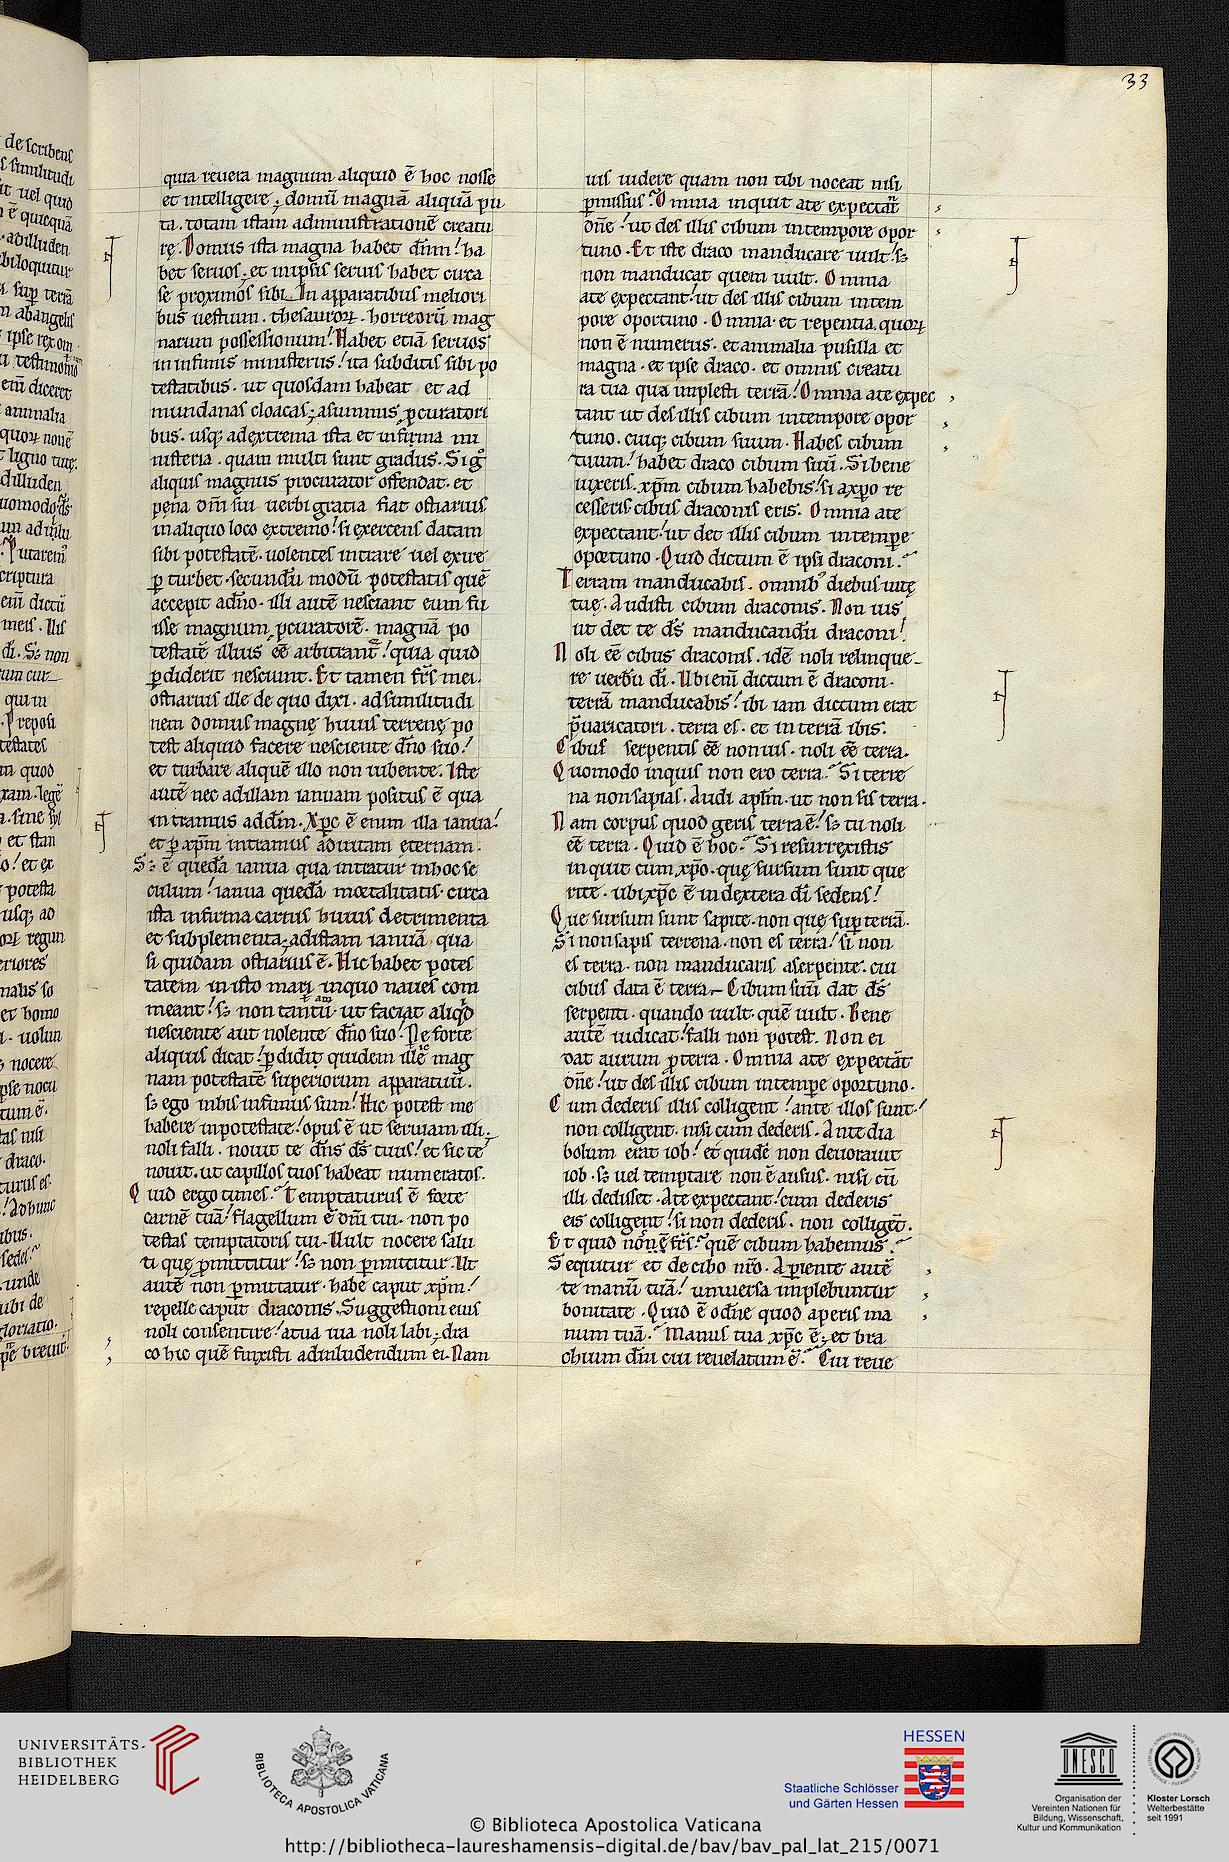 33
quia reuera magnum aliquid ē hoc nosse
et intelligere; domū magnā aliquā pu
ta. totam istam administrationē creatu
rę. Domus ista magna habet dn̄m! ha
bet seruos. et inipsis seruis habet circa
se proximos sibi. In apparatibus meliori
bus uestium. thesauroꝝ. horreorū mag
narum possessionum! Habet etiā seruos
in infimis ministeriis! ita subditis sibi po
testatibus. ut quosdam habeat et ad
mundanas cloacas; asummis ꝓcuratori
bus. usq; adextrema ista et infirma mi
nisteria. quam multi sunt gradus. Sigͦ
aliquis magnus procurator offendat. et
pena dn̄i sui uerbi gratia fiat ostiarius
inaliquo loco extremo! si exercens datam
sibi potestatē. uolentes intrare uel exire
ꝑ turbet. secundū modū potestatis quē
accepit adn̄o. illi autē nesciant eum fu
isse magnum ꝓcuratorē. magnā po
testatē illius eē arbitrant᷑! quia quid
ꝑdiderit nesciunt. Et tamen fr̄s mei.
ostiarius ille de quo dixi. adsimilitudi
nem domus magnę huius terrenę po
test aliquid facere nesciente dn̄o suo!
et turbare aliquē illo non iubente. Iste
autē nec adillam ianuam positus ē qua
intramus addn̄m. Xp̄c ē enim illa ianua!
et ꝑ xp̄m intramus aduitam eternam.
S; ē quedā ianua qua intratur inhoc se
culum! ianua quedā mortalitatis. circa
ista infirma carnis huius detrimenta
et subplementa; adistam ianuā qua
si quidam ostiarius ē. Hic habet potes
tatem in isto mari inquo naues com
meant! s; non tantū t̄ am ut faciat aliqͥd
nesciente aut nolente dn̄o suo! Ne forte
aliquis dicat! ꝑdidit quidem ille mag
nam potestatē superiorum apparatuū.
s; ego inhis infimus sum! Hic potest me
habere inpotestate! opus ē ut seruiam illi.
noli falli. nouit te dn̄s ds̄ tuus! et sic te
nouit. ut capillos tuos habeat numeratos.
Quid ergo times? Temptaturus ē forte
carnē tuā! flagellum ē dn̄i tui. non po
testas temptatoris tui. Uult nocere salu
ti quę ꝑmittitur! s; non ꝑmittitur. Ut
autē non ꝑmittatur. habe caput xp̄m!
repelle caput draconis. Suggestioni eius
noli consentire! atua uia noli labi; dra
co hic quē finxisti adinludendum ei. Nam
uis uidere quam non tibi noceat nisi
ꝑmissus? Omnia inquit ate expectāt
dn̄e! ut des illis cibum intempore opor
tuno. Et iste draco manducare uult! s;
non manducat quem uult. Omnia
ate expectant! ut des illis cibum intem
pore oportuno. Omnia. et repentia quoꝝ
non ē numerus. et animalia pusilla et
magna. et ipse draco. et omnis creatu
ra tua qua implesti terrā! Omnia ate expec
tant ut des illis cibum intempore opor
tuno. cuiq; cibum suum. Habes cibum
tuum! habet draco cibum suū. Si bene
uixeris. xp̄m cibum habebis! si axp̄o re
cesseris cibus draconis eris. Omnia ate
expectant! ut det illis cibum intempe
oportuno. Quid dictum ē ipsi draconi?
Terram manducabis. omnib; diebus uitę
tuę. Audisti cibum draconis. Non uis
ut det te ds̄ manducandū draconi!
Noli eē cibus draconis. idē noli relinque
re uerbū dī. Ubi enī dictum ē draconi.
terrā manducabis! ibi iam dictum erat
p̄uaricatori. terra es. et in terrā ibis.
Cibus serpentis eē non uis. noli eē terra.
Quomodo inquis non ero terra? Si terre
na non sapias. Audi apl̄m. ut non sis terra.
Nam corpus quod geris terra ē! s; tu noli
eē terra. Quid ē hoc? Si resurrexistis
inquit cum xp̄o. quę sursum sunt que
rite. ubi xp̄c ē in dextera dī sedens!
Que sursum sunt sapite. non quę suꝑ terrā.
Si non sapis terrena. non es terra! si non
es terra. non manducaris aserpente. cui
cibus data ē terra. Cibum suū dat ds̄
serpenti. quando uult. quē uult. Bene
autē iudicat! falli non potest. Non ei
dat aurum ꝓ terra. Omnia ate expectāt
dn̄e! ut des illis cibum intempe oportuno.
Cum dederis illis colligent! ante illos sunt!
non colligent. nisi cum dederis. Ante dia
bolum erat iob! et quidē non deuorauit
iob. s; uel temptare non ē ausus. nisi cū
illi dedisset. Ate expectant! cum dederis
eis colligent! si non dederis. non colligēt.
Et quid nōn ē fr̄s? quē cibum habemus?
Sequitur et de cibo nr̄o. Aꝑiente autē
te manū tuā! uniuersa implebuntur
bonitate. Quid ē o dn̄e quod aperis ma
num tuā? Manus tua xp̄c ē; et bra
chium dn̄i cui reuelatum ē? Cui reue
UNIVERSITÄTS-
BIBLIOTHEK
HEIDELBERG
BIBLIOTECA APOSTOLICA VATICANA
HESSEN
Staatliche Schlösser
und Gärten Hessen
UNESCO
Organisation der
Vereinten Nationen für
Bildung, Wissenschaft,
Kultur und Kommunikation
Kloster Lorsch
Welterbestätte
seit 1991
© Biblioteca Apostolica Vaticana
http://bibliotheca-laureshamensis-digital.de/bav/bav_pal_lat_215/0071